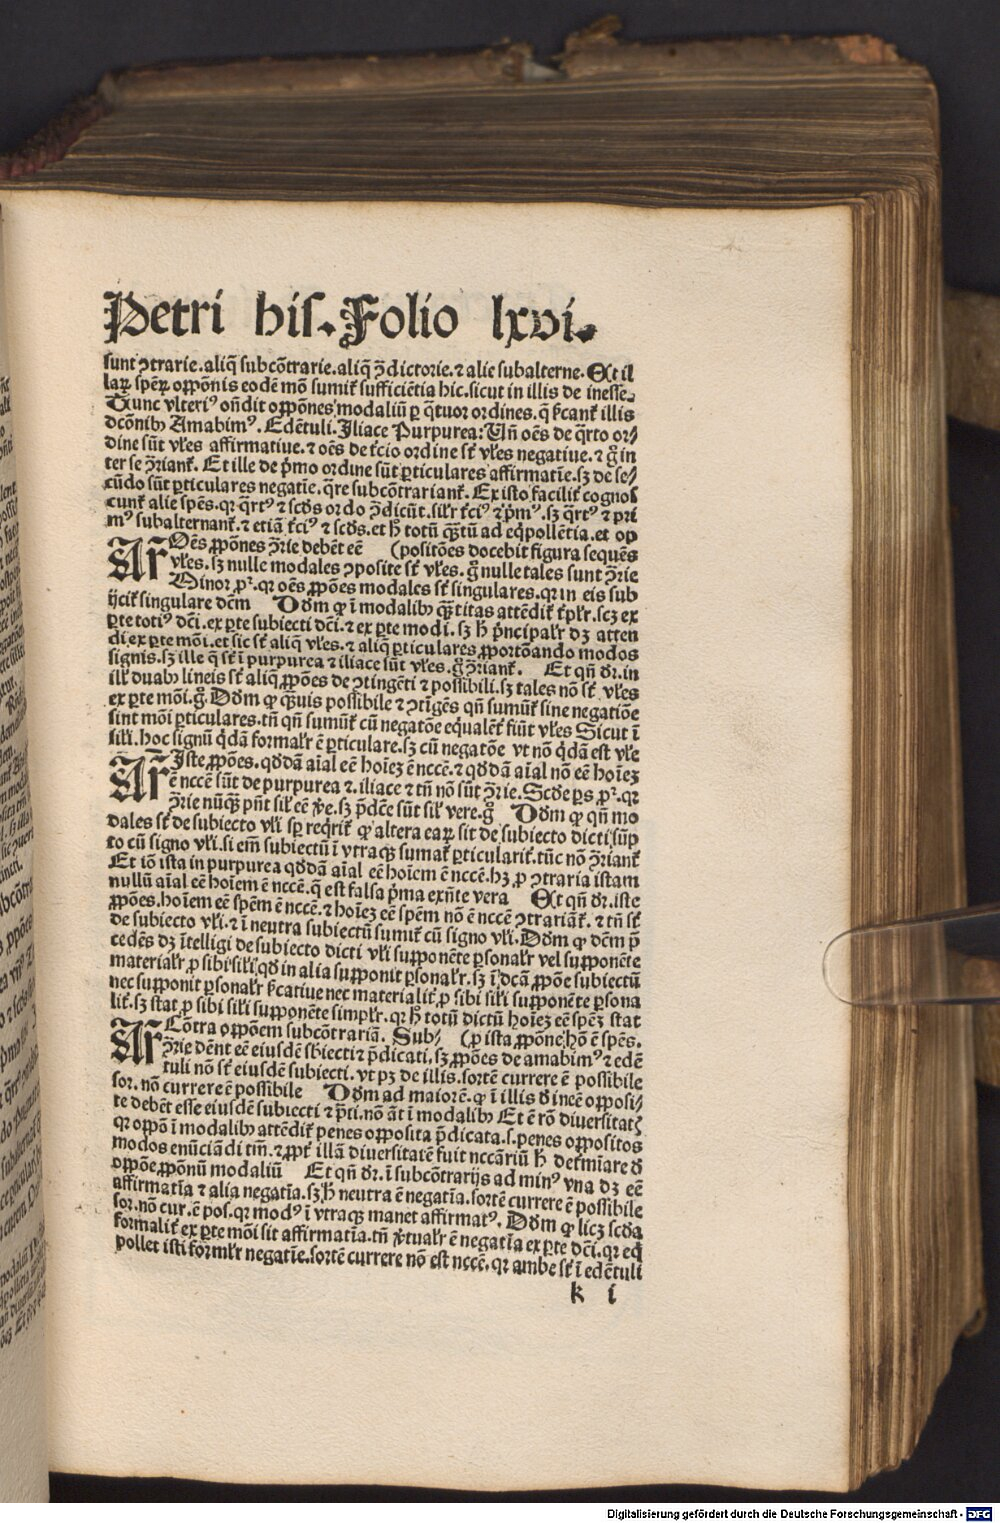 Petri hiſ. Folio lxvi.
sunt ↄtrarie. aliq̄ subcōtrarie. aliq̄ ↄ̄dictorie. ⁊ alie subalterne. Et il
larꝝ sperꝝ oppōnis eodē mō sumit᷑ sufficiētia hic. sicut in illis de inesse.
Tunc vlteriꝰ oñdit oppōnes modaliū ꝑ q̄tuor ordines. q̄ ſ̄cant᷑ illis
dcōnibꝫ Amabimꝰ. Edētuli. Iliace Purpurea: Uñ oēs de q̄rto or⸗
dine sūt vl̄es affirmatiue. ⁊ oēs de t̄cio ordine st̄ vl̄es negatiue. ⁊ g̊ in
ter se ↄ̄riant᷑. Et ille de p̄mo ordine sūt ꝑticulares affirmatīe. sꝫ de se⸗
cūdo sūt ꝑticulares negatīe. q̄re subcōtrariant᷑. Ex isto facilit᷑ cognos
cunt᷑ alie spēs. qꝛ q̄rtꝰ ⁊ scd̄s ordo ↄ̄dicūt. silr̄ t̄ciꝰ ⁊ p̄mꝰ. sꝫ q̄rtꝰ ⁊ pri
mꝰ subalternant᷑. ⁊ etiā t̄ciꝰ ⁊ scd̄s. et h̄ totū q̄ꝫtū ad eq̄pollētia. et op
Ar Oēs ꝓpōnes ↄ̄rie debēt eē (positōes docebit figura sequēs
vl̄es. sꝫ nulle modales ↄposite st̄ vl̄es. g̊ nulle tales sunt ↄ̄rie
Minor pꝛ. qꝛ oēs ꝓpōes modales st̄ singulares. qꝛ in eis sub
ijcit᷑ singulare dc̄m Dd̄m ꝙ ī modalibꝫ q̄ꝫtitas attēdit᷑ t̄plr̄. scꝫ ex
ꝑte totiꝰ dc̄i. ex ꝑte subiecti dc̄i. ⁊ ex ꝑte modi. sꝫ h̄ p̄ncipalr̄ dꝫ atten
di ex ꝑte mōi. et sic st̄ aliq̄ vl̄es. ⁊ aliq̄ ꝑticulares ꝓportōando modos
signis. sꝫ ille q̄ st̄ ī purpurea ⁊ iliace sūt vl̄es. g̊ ↄ̄riant᷑. Et qñ dr̄. in
ill̄ duabꝫ lineis st̄ aliq̄ ꝓpōes de ↄtingēti ⁊ possibili. sꝫ tales nō st̄ vl̄es
ex ꝑte mōi. g̊. Dd̄m ꝙ q̄ꝫuis possibile ⁊ ↄtīgēs qñ sumūt᷑ sine negatiōe
sint mōi ꝑticulares. tñ qñ sumūt᷑ cū negatōe eq̄ualēt᷑ fiūt vl̄es Sicut ī
sil̄i. hoc signū q̄dā formalr̄ ē ꝑticulare. sꝫ cū negatōe vt nō q̄dā est vl̄e
Ar Iste ꝓpōes. qd̄dā aīal eē hoīez ē nccē. ⁊ qd̄dā aīal nō eē hoīez
ē nccē sūt de purpurea ⁊. iliace ⁊ tñ nō sūt ↄ̄rie. Scd̄e ꝑs pꝛ. qꝛ
ↄ̄rie nūq̄ꝫ pñt sil̄ eē v̄e. sꝫ p̄dc̄e sūt sil̄ vere. g̊ Dd̄m ꝙ qñ mo
dales st̄ de subiecto vl̄i sp̄ req̄rit᷑ ꝙ altera earꝝ sit de subiecto dicti sūp
to cū signo vl̄i. si em̄ subiectū ī vtraqꝫ sumat᷑ ꝑticularit᷑. tūc nō ↄ̄riant᷑
Et iō ista in purpurea qd̄dā aīal eē hoīem ē nccē. hꝫ ꝓ ↄtraria istam
nullū aīal eē hoīem ē nccē. q̄ est falsa p̄ma exñte vera Et qñ dr̄. iste
ꝓpōes. hoīem eē spēm ē nccē. ⁊ hoīez eē spēm nō ē nccē ↄtrariāt᷑. ⁊ tñ st̄
de subiecto vl̄i. ⁊ ī neutra subiectū sumit᷑ cū signo vl̄i. Dd̄m ꝙ dc̄m p̄
cedēs dꝫ ītelligi de subiecto dicti vl̄i supponēte ꝑsonalr̄ vel supponēte
materialr̄ ꝓ sibi sil̄i qd̄ in alia supponit ꝑsonalr̄. sꝫ ī dc̄ā ꝓpōe subiectū
nec supponit ꝑsonalr̄ ſ̄catiue nec materialit᷑ ꝓ sibi sil̄i supponēte ꝑsona
lit᷑. sꝫ stat ꝓ sibi sil̄i supponēte simplr̄. qꝛ h̄ totū dictū hoīez eē spēꝫ stat
Ar Cōtra oppōem subcōtrariā. Sub⸗ (ꝓ ista ꝓpōne hō ē spēs.
ↄ̄rie dēnt eē eiusdē sb̄iecti ⁊ p̄dicati. sꝫ ꝓpōes de amabimꝰ ⁊ edē
tuli nō st̄ eiusdē subiecti. vt pꝫ de illis. sortē currere ē possibile
sor. nō currere ē possibile Dd̄m ad maiorē. ꝙ ī illis d̄ ineē opposi⸗
te debēt esse eiusdē subiecti ⁊ p̄ti. nō āt ī modalibꝫ Et ē rō diuersitatꝭ
qꝛ oppōn ī modalibꝫ attēdit᷑ penes opposita p̄dicata. s. penes oppositos
modos enūciādi tm̄. ⁊ ꝓpt̄ illā diuersitatē fuit nccāriū h̄ det̄mīare d̄
oppōe ꝓpōnū modaliū Et qñ dr̄. ī subcōtrarijs ad minꝰ vna dꝫ eē
affirmatīa ⁊ alia negatīa. sꝫ h̄ neutra ē negatīa. sortē currere ē possibile
sor. nō cur. ē pos. qꝛ modꝰ ī vtraqꝫ manet affirmatꝰ. Dd̄m ꝙ licꝫ scd̄a
formalit᷑ ex ꝑte mōi sit affirmatīa. tñ v̄tualr̄ ē negatīa ex ꝑte dc̄i. qꝛ eq̄
pollet isti formlr̄ negatīe. sortē currere nō est nccē. qꝛ ambe st̄ ī edētuli
k i
Digitalisierung gefördert durch die Deutsche Forschungsgemeinschaft - DFG